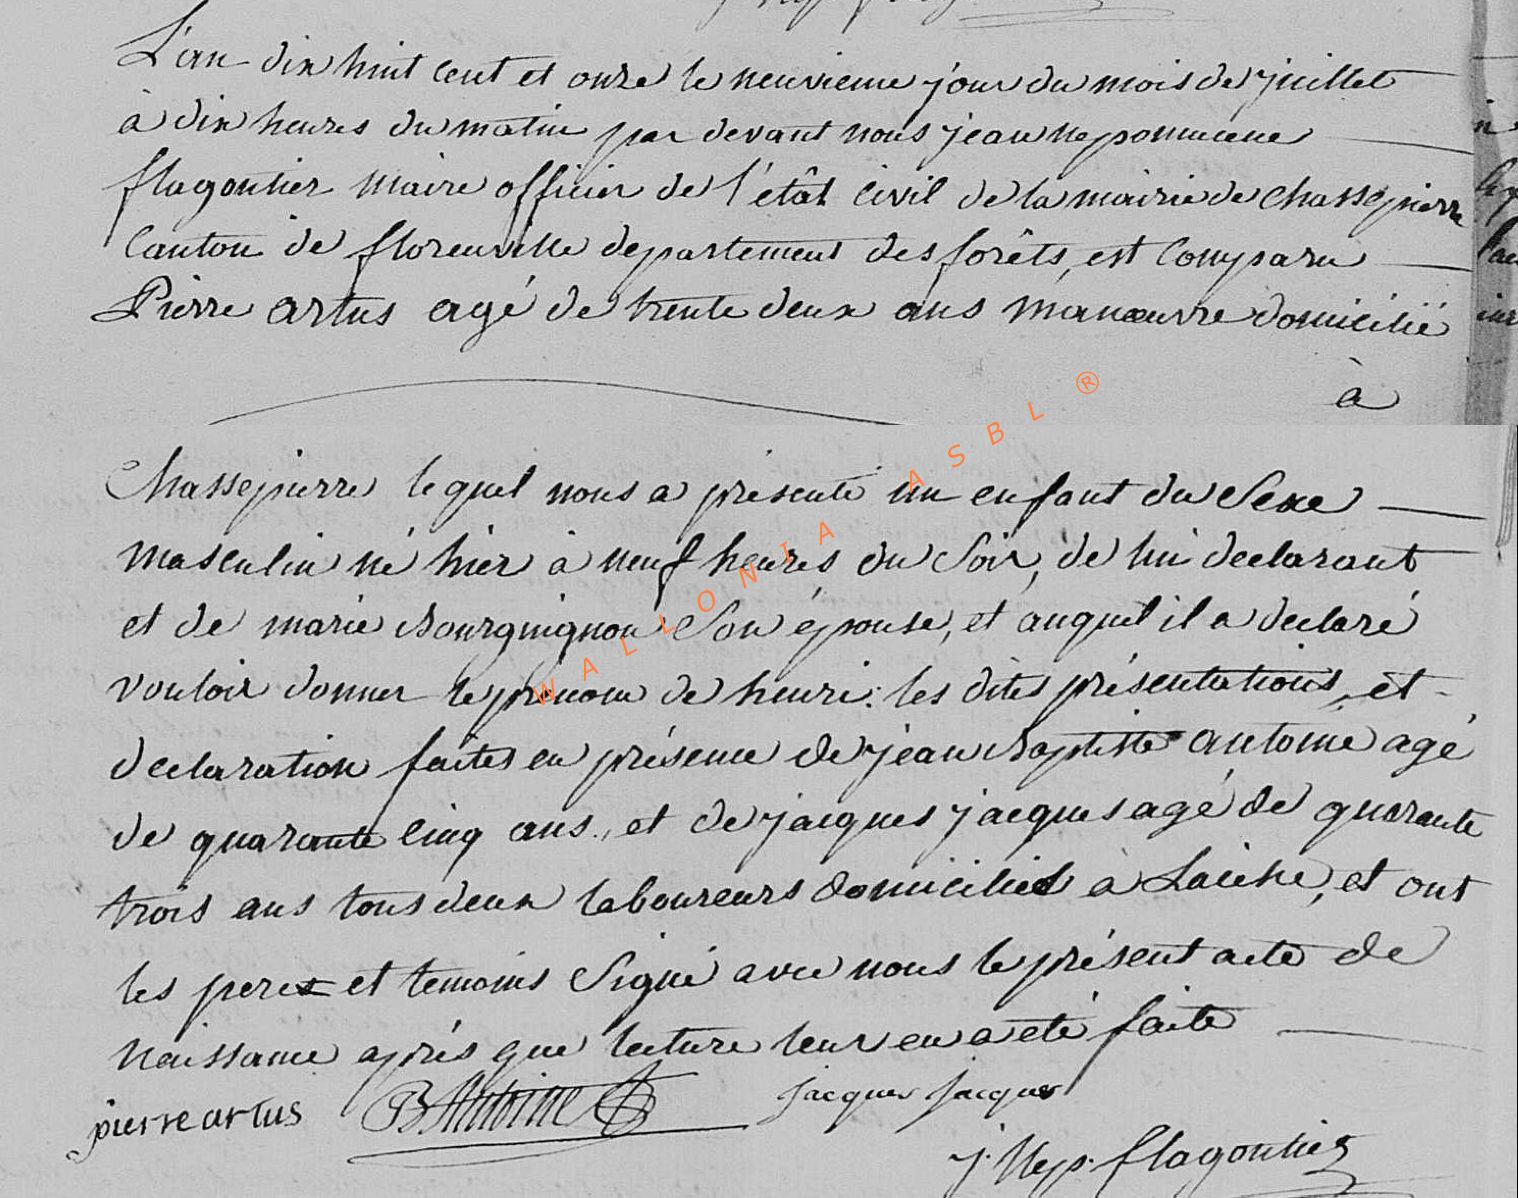 L'an dix huit cent et onze le neuvieme jour du mois de juillet
à dix heures du matin par devant nous jean nepomucene
flagontier maire officier de l'étât civil de la mairie de chassepierre
Canton de florenville departement des forêts, est Comparu
Pierre artus agé de trente deux ans manœuvre domicilié
à
Chassepierre lequel nous a présenté un enfant du Sexe
masculin né hier à neuf heures du Soir, de lui declarant
et de marie Bourguignon Son épouse, et auquel il a declaré
vouloir donner le prenom de henri: les dites présentations, et
declaration faites en présence de jean Baptiste antoine agé
de quarante cinq ans, et de jacques jacques agé de quarante
trois ans tous deux laboureurs domiciliés à Laiche, et ont
les peres et temoins Signé avec nous le présent acte de
Naissance aprés que lecture leur en a été faite
pierre artus B Antoine jacques jacques
j. Nep. flagontier
WALLONIA ASBL ®